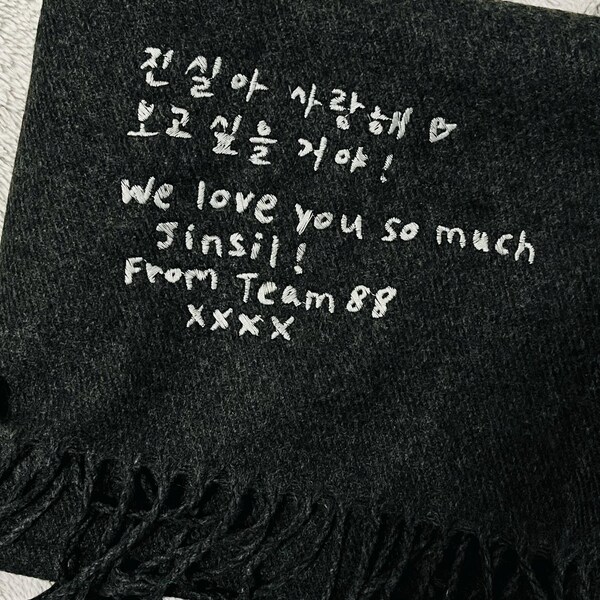 진실아 사랑해 ♡
보고 싶을 거야!
We love you so much
Jinsil!
From Team 88
xxxx